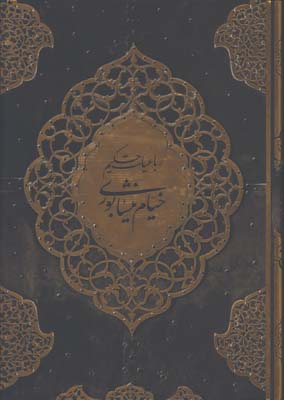 رباعیات حکیم
خیام نیشابوری